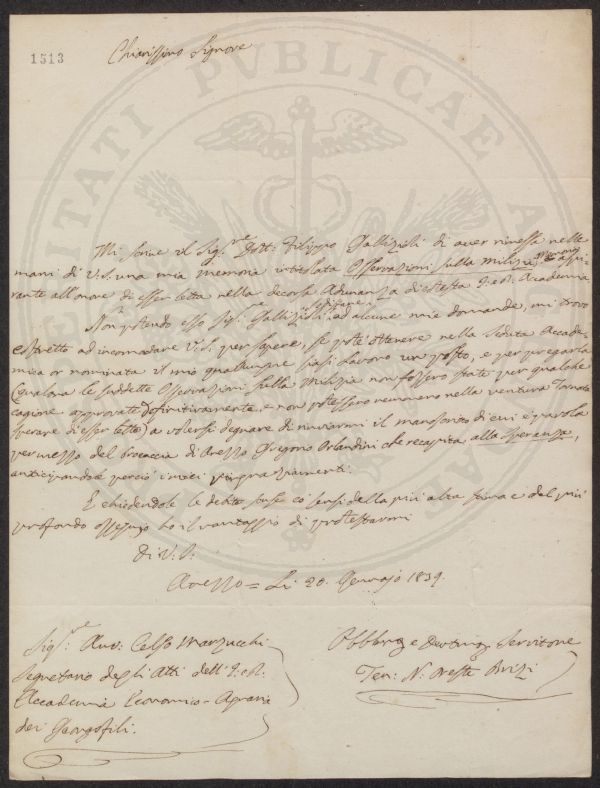 1513
Chiarissimo Signore
PUBLICAE
Mi scrive il Sig.re Dott: Filippo Gallizioli di aver rimessa nelle
mani di V.S. una mia memoria intitolata Osservazioni sulla Milizia, aspi-
rante all'onore di esser letta nella decorsa Adunanza di cotesta I. e R. Accademia.
Non potendo esso Sig.re Gallizioli sodisfare ad alcune mie domande, mi trovo
costretto ad incomodare V.S. per sapere, se poté ottenere nella Seduta Accade-
mica or nominata il mio qualunque siasi lavoro un posto, e per pregarla
(qualora le suddette Osservazioni sulla Milizia non fossero state per qualche
cagione approvate definitivamente, e non potessero nemmeno nella ventura Tornata
sperare di esser lette) a volersi degnare di inviarmi il manoscritto di cui è parola
per mezzo del Procaccia di Arezzo Orlandini che recapita alla Speranza,
anticipandole perciò i miei ringraziamenti.
E chiedendole le debite scuse co' sensi della più alta stima e del più
profondo ossequio ho il vantaggio di protestarmi
Di V.S.
Arezzo = Li 20. Gennajo 1839.
Sig.re Avv: Celso Marzucchi
Segretario degli Atti dell'I. e R.
Accademia Economico-Agraria
dei Georgofili.
Obblmo e Devotmo Servitore
Ten: N. Oreste Brizi